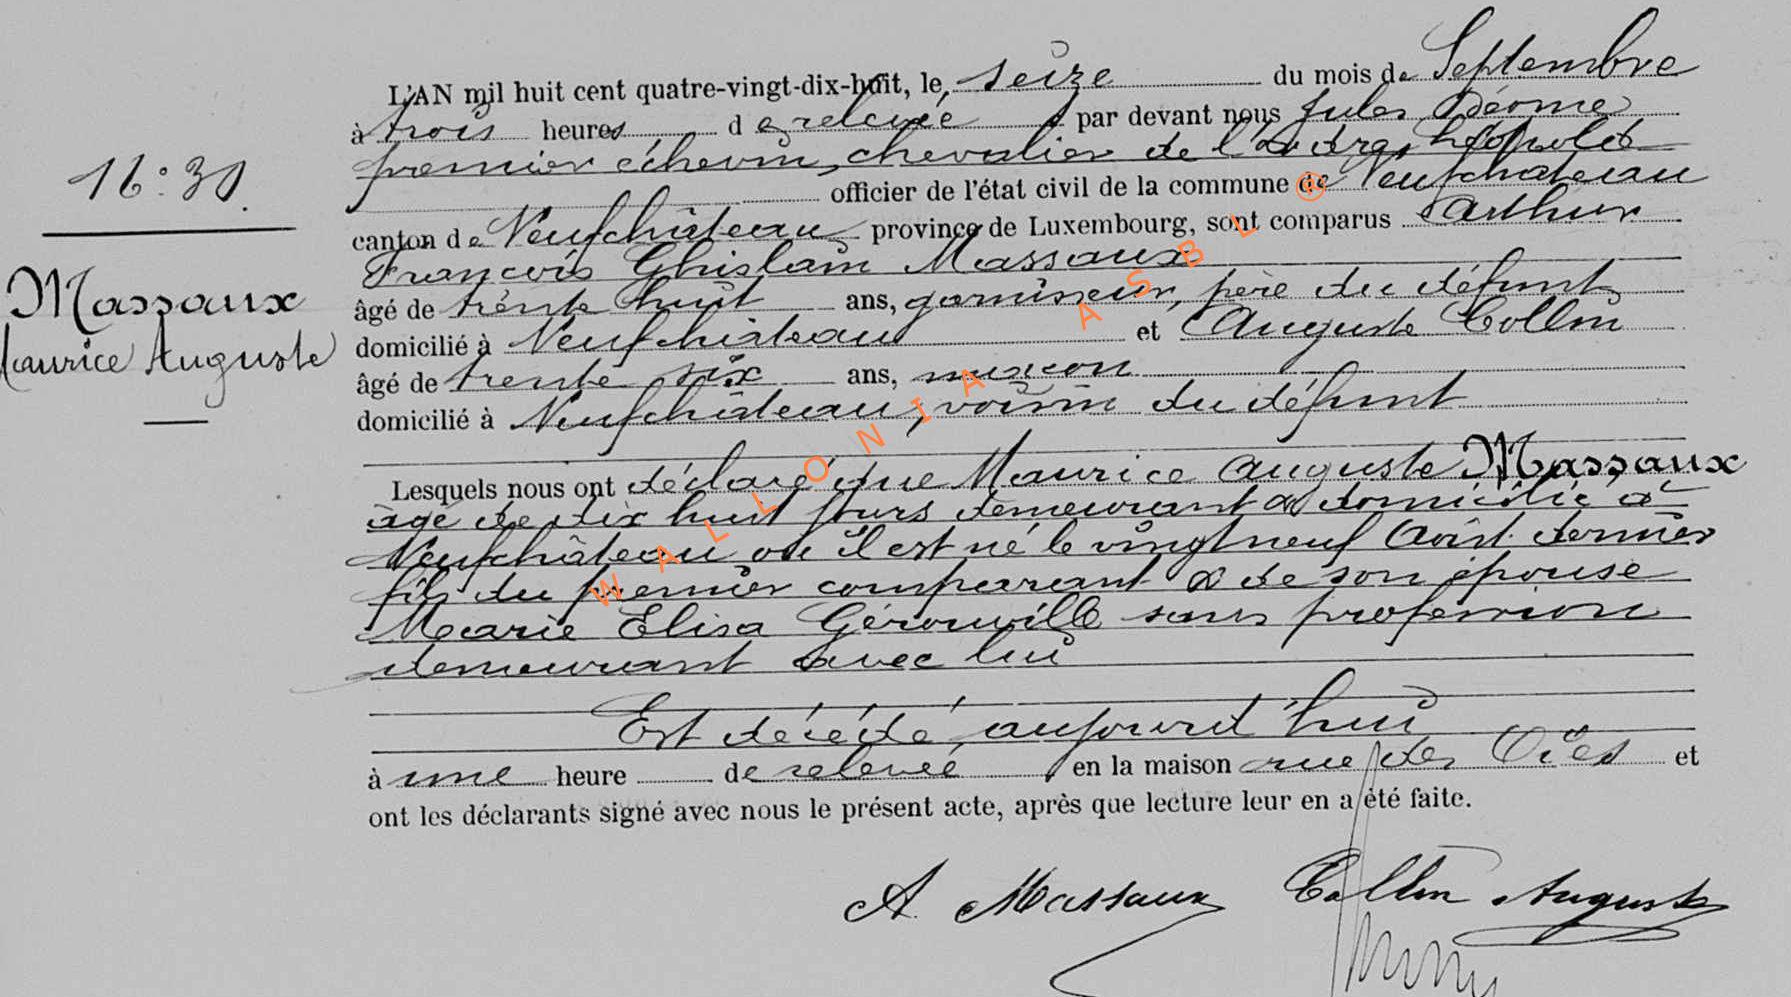 L'AN mil huit cent quatre-vingt-dix-huit, le seize du mois de Septembre
à trois heures de relevée par devant nous Jules Déome
premier échevin, chevalier de l'ordre Léopold
officier de l'état civil de la commune de Neufchateau
canton de Neufchâteau province de Luxembourg, sont comparus Arthur
François Ghislain Massaux
âgé de trente huit ans, garnisseur, père du défunt
domicilié à Neufchâteau et Auguste Collin
âgé de trente six ans, maçon
domicilié à Neufchâteau, voisin du défunt
Lesquels nous ont déclaré que Maurice Auguste Massaux
âgé de dix huit jours demeurant & domicilié à
Neufchâteau où il est né le vingt neuf Août dernier
fils du premier comparant & de son épouse
Marie Elisa Gérouville sans profession
demeurant avec lui
Est décédé aujourd'hui
à une heure de relevée en la maison rue des Oies et
ont les déclarants signé avec nous le présent acte, après que lecture leur en a été faite.
A Massaux Collin Auguste
16:30.
Massaux
Maurice Auguste
WALLONIA ASBL ®